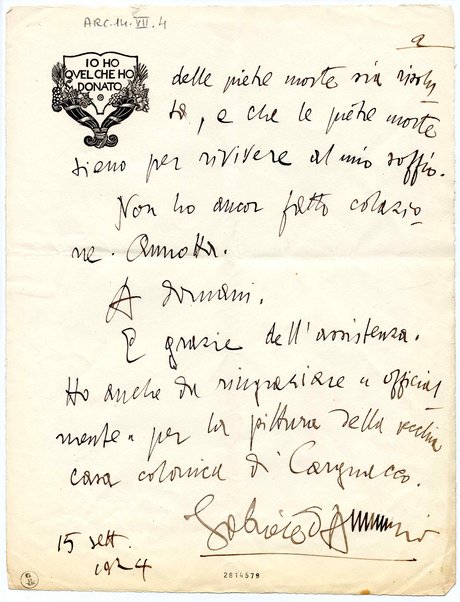 ARC.14.VII.4
a
IO HO
QVEL CHE HO
DONATO
delle pietre morte sia risolu
ta, e che le pietre morte
sieno per rivivere al mio soffio.
Non ho ancor fatto colazio
ne. Annotta.
A domani.
E grazie dell'assistenza.
Ho anche da ringraziare "official
mente" per la pittura della vecchia
casa colonica di Cargnacco.
Gabriele d'Annunzio
15 sett.
1924
2814579